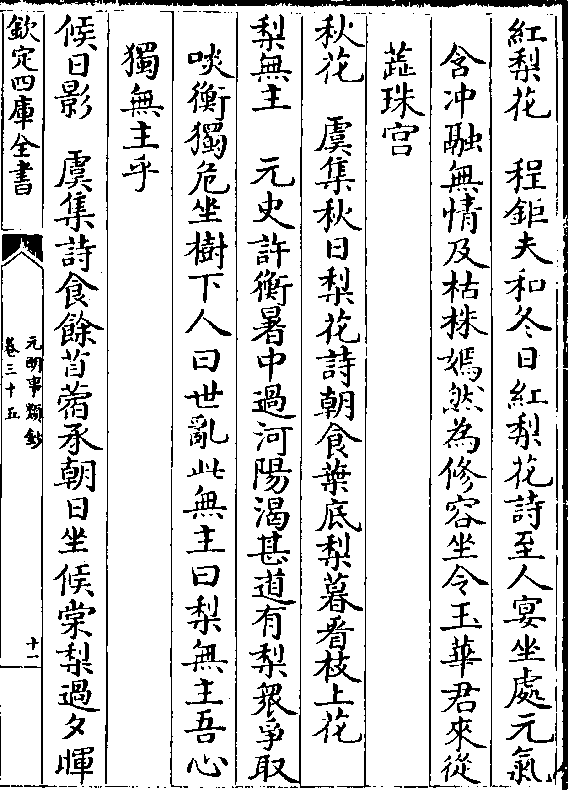 紅梨花　程鉅夫和冬日紅梨花詩至人宴坐處元氣
含冲融無情及枯株嫣然為修容坐令玉華君來從
蕋珠宫
秋花　虞集秋日梨花詩朝食葉底梨暮看枝上花
梨無主　元史許衡暑中過河陽渴甚道有梨衆爭取
啖衡獨危坐樹下人曰世亂此無主曰梨無主吾心
獨無主乎
候日影　虞集詩食餘苜蓿承朝日坐候棠梨過夕暉
欽定四庫全書
元明事類鈔
卷三十五
十一